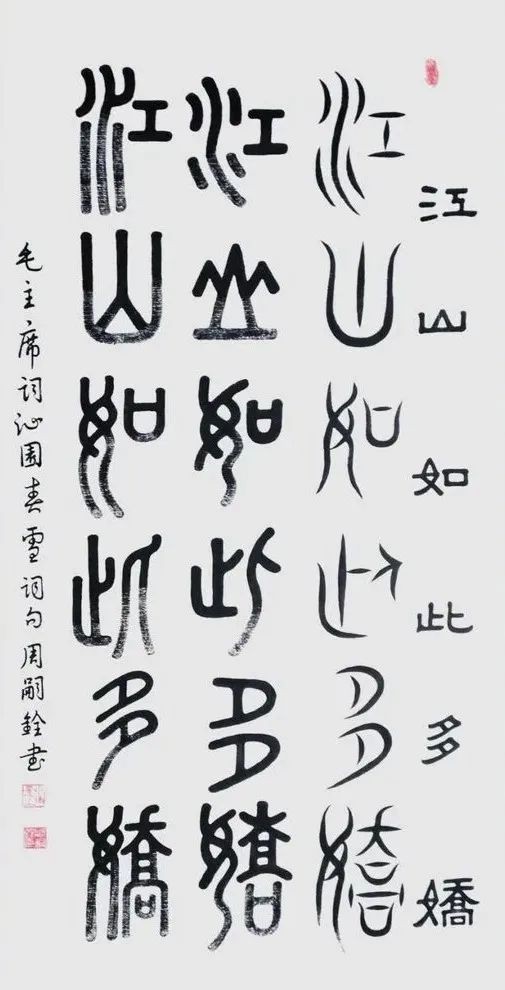 江山如此多嬌
江山如此多嬌
江山如此多嬌
江山如此多嬌
毛主席词沁園春雪词句周嗣銓书